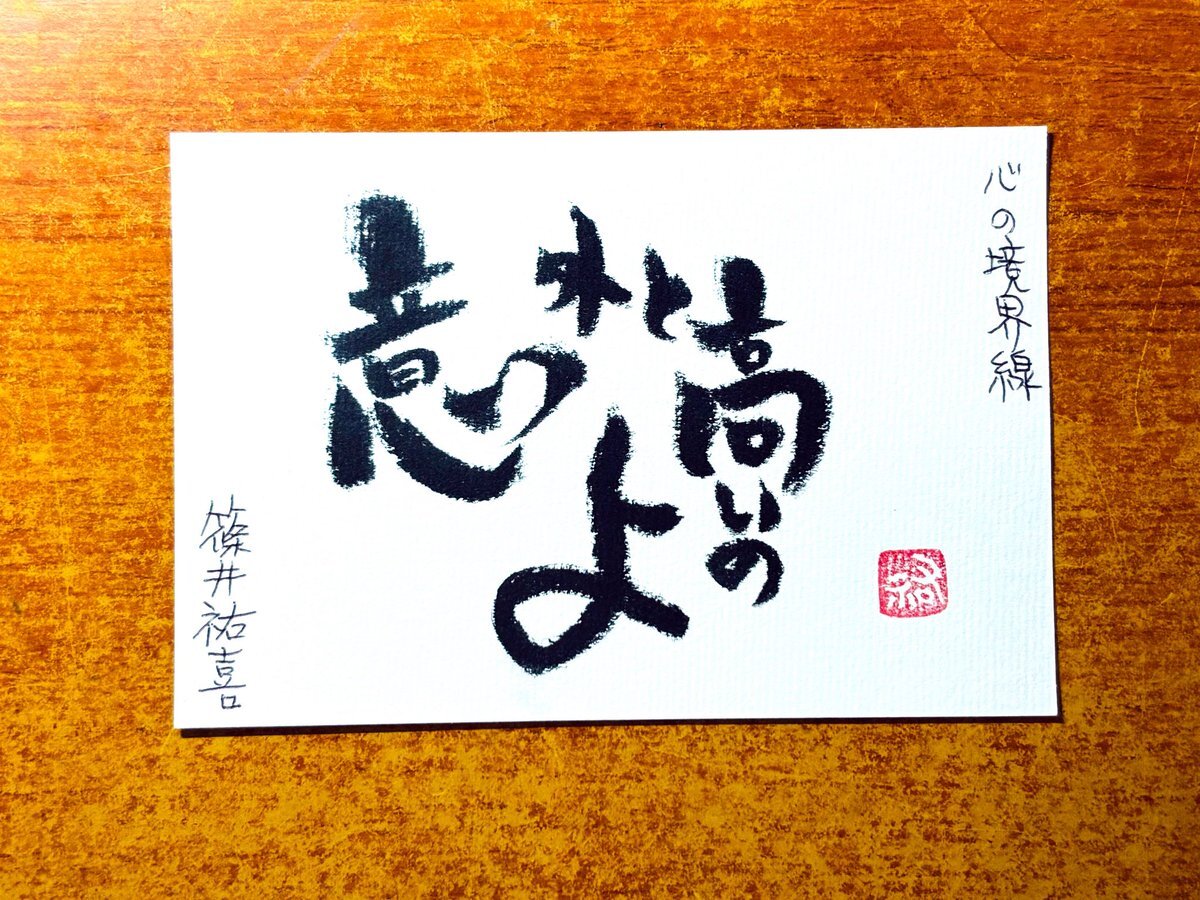 心の境界線
意外と高いの
よ
篠井祐喜